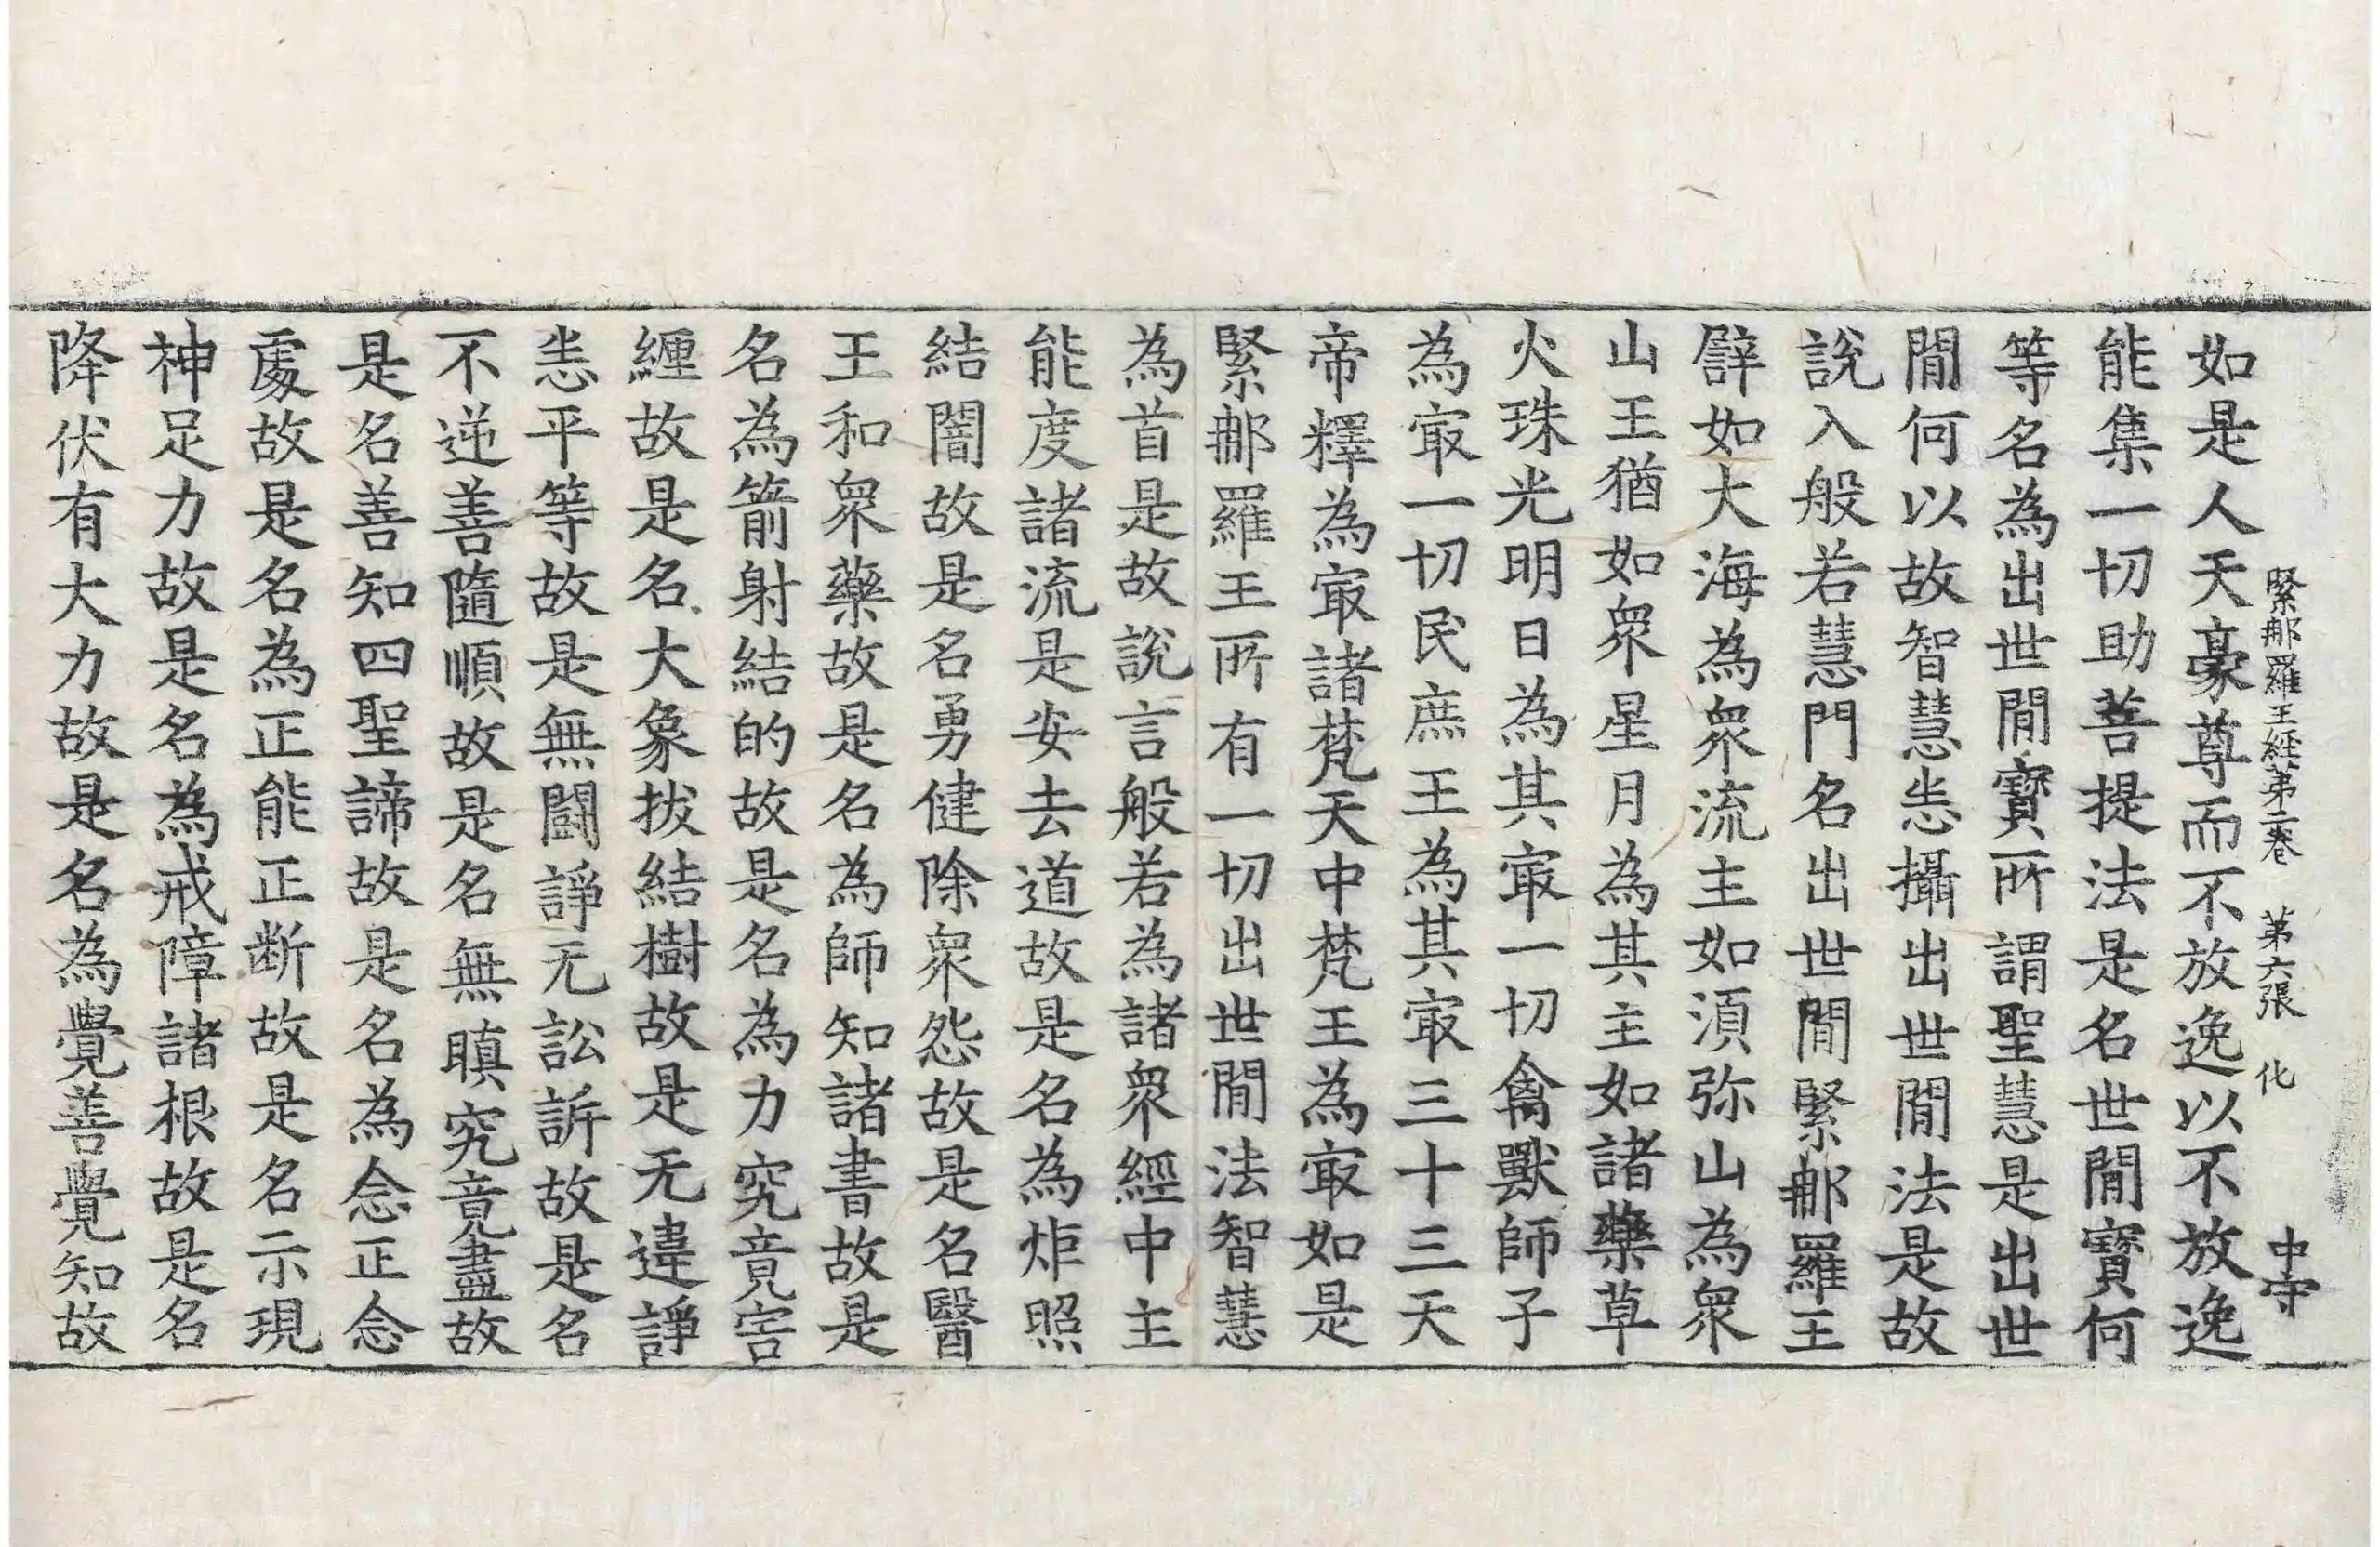 緊那羅王經第二卷 第六張 化 中守
如是人天豪尊而不放逸以不放逸
能集一切助菩提法是名世閒寶何
等名為出世閒寶所謂聖慧是出世
閒何以故智慧恙攝出世閒法是故
說入般若慧門名出世閒緊那羅王
譬如大海為衆流主如湏弥山為衆
山王猶如衆星月為其主如諸藥草
火珠光明日為其㝡一切禽獸師子
為㝡一切民庶王為其㝡三十三天
帝釋為㝡諸梵天中梵王為㝡如是
緊那羅王所有一切出世閒法智慧
為首是故說言般若為諸衆經中主
能度諸流是安去道故是名為炬照
結闇故是名勇健除衆怨故是名醫
王和衆藥故是名為師知諸書故是
名為箭射結的故是名為力究竟害
纏故是名大象拔結樹故是无違諍
恙平等故是無闘諍无訟訴故是名
不逆善隨順故是名無瞋究竟盡故
是名善知四聖諦故是名為念正念
處故是名為正能正断故是名示現
神足力故是名為戒障諸根故是名
降伏有大力故是名為覺善覺知故